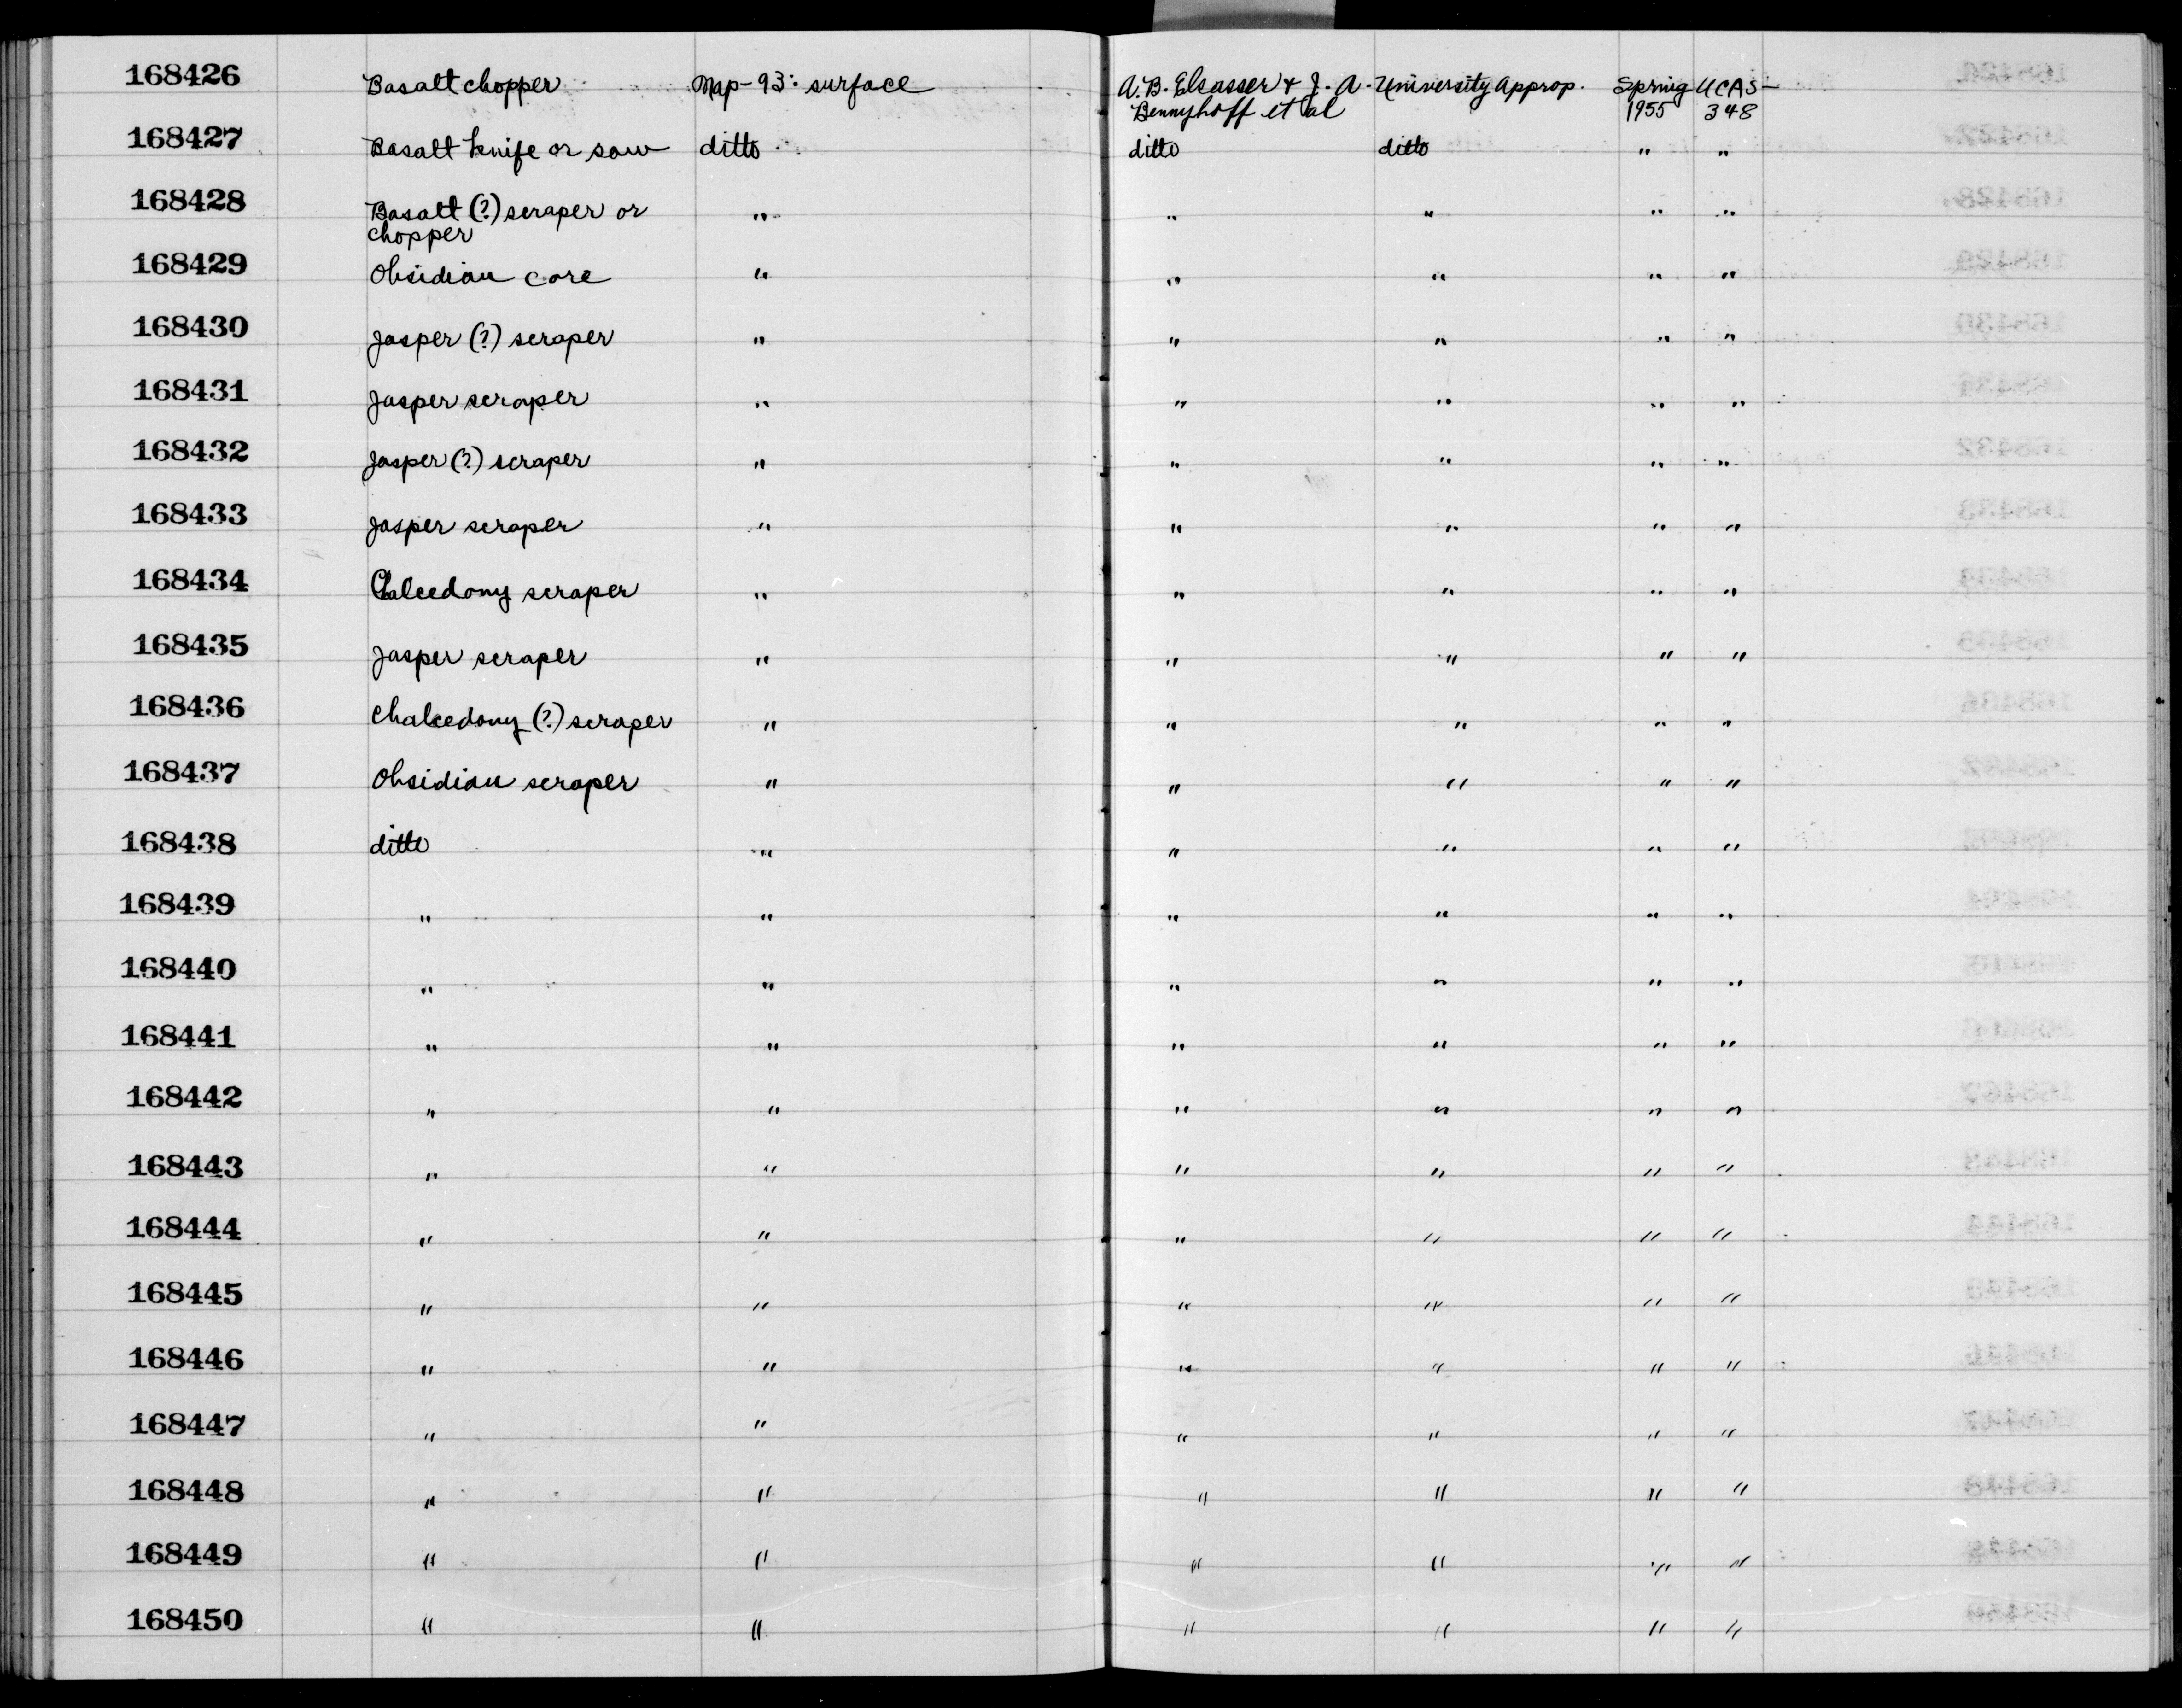 168426 Basalt chopper Map-93: surface A. B. Elsasser & J. A. University Approp. Spring UCAS-
Bennyhoff et al 1955 348
168427 Basalt knife or saw ditto ditto ditto " "
168428 Basalt (?) scraper or " " " " "
chopper
168429 Obsidian core " " " " "
168430 Jasper (?) scraper " " " " "
168431 Jasper scraper " " " " "
168432 Jasper (?) scraper " " " " "
168433 Jasper scraper " " " " "
168434 Chalcedony scraper " " " " "
168435 Jasper scraper " " " " "
168436 Chalcedony (?) scraper " " " " "
168437 Obsidian scraper " " " " "
168438 ditto " " " " "
168439 " " " " " "
168440 " " " " " "
168441 " " " " " "
168442 " " " " " "
168443 " " " " " "
168444 " " " " " "
168445 " " " " " "
168446 " " " " " "
168447 " " " " " "
168448 " " " " " "
168449 " " " " " "
168450 " " " " " "